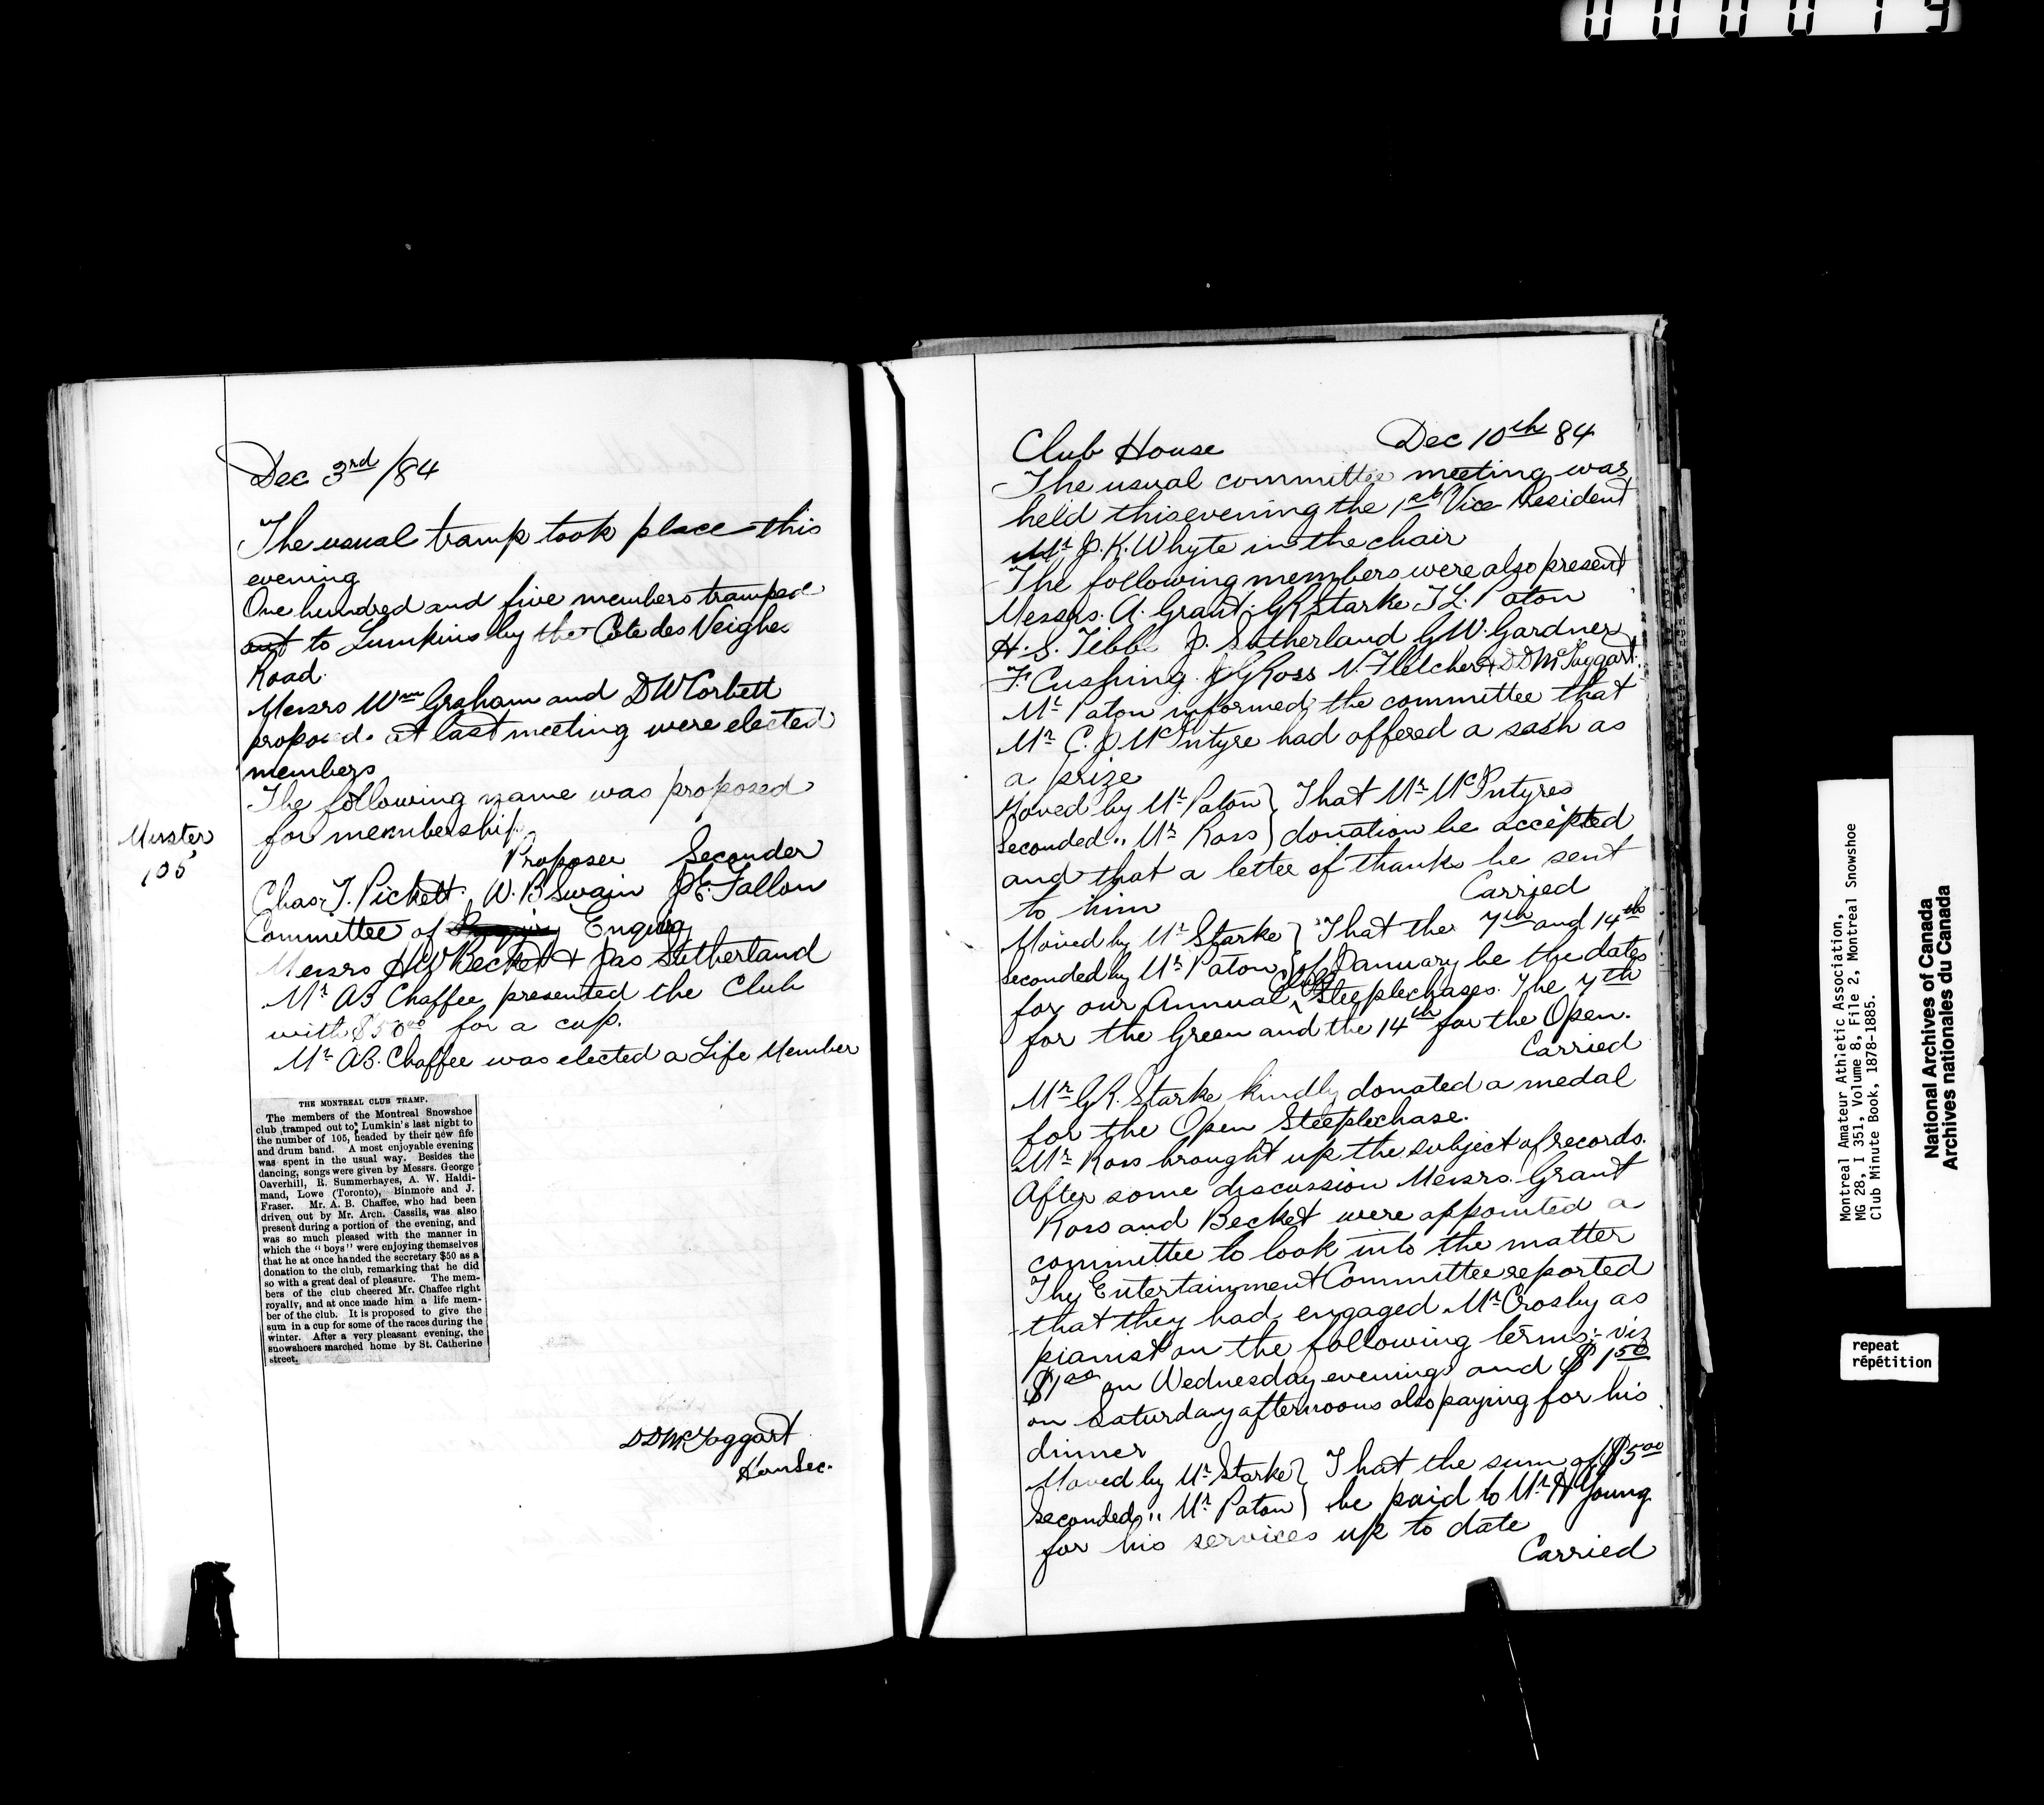 000019
Dec 3rd /84
The usual tramp took place this
evening
One hundred and five members tramped
out to Lumkins by the Cote des Neighes
Road.
Messrs Wm Graham and D W Corbett
proposed at last meeting were elected
members
The following name was proposed
for membership
Muster
105
Proposer Seconder
Chas T. Pickett. W. B Swain J E. Fallon
Committee of Enquiry
Messrs H W Becket + Jas Sutherland
Mr A B Chaffee presented the Club
with $50.00 for a cup.
Mr A.B. Chaffee was elected a Life Member
THE MONTREAL CLUB TRAMP.
The members of the Montreal Snowshoe
club tramped out to Lumkin's last night to
the number of 105, headed by their new fife
and drum band. A most enjoyable evening
was spent in the usual way. Besides the
dancing, songs were given by Messrs. George
Oaverhill, R. Summerhayes, A. W. Haldi-
mand, Lowe (Toronto), Binmore and J.
Fraser. Mr. A. B. Chaffee, who had been
driven out by Mr. Arch. Cassils, was also
present during a portion of the evening, and
was so much pleased with the manner in
which the "boys" were enjoying themselves
that he at once handed the secretary $50 as a
donation to the club, remarking that he did
so with a great deal of pleasure. The mem-
bers of the club cheered Mr. Chaffee right
royally, and at once made him a life mem-
ber of the club. It is proposed to give the
sum in a cup for some of the races during the
winter. After a very pleasant evening, the
snowshoers marched home by St. Catherine
street.
D D McTaggart
Hon Sec.
Club House Dec 10th 84
The usual committee meeting was
held this evening the 1st Vice President
Mr J. K. Whyte in the chair
The following members were also present
Messrs. A. Grant. G R Starke T L. Paton
H. S. Tibbs J. Sutherland G W. Gardner
F. Cushing. J G Ross N. Fletcher + D D McTaggart.
Mr Paton informed the committee that
Mr C. J. McIntyre had offered a sash as
a prize
Moved by Mr Paton } That Mr McIntyres
Seconded " Mr Ross } donation be accepted
and that a letter of thanks be sent
to him Carried
Moved by Mr Starke } That the 7th and 14th
Seconded by Mr Paton } of January be the dates
for our Annual Club Steeplechases. The 7th
for the Green and the 14th for the Open.
Carried
Mr G R. Starke kindly donated a medal
for the Open Steeplechase.
Mr Ross brought up the subject of records.
After some discussion Messrs. Grant
Ross and Becket were appointed a
committee to look into the matter
The Entertainment Committee reported
that they had engaged Mr Crosby as
pianist on the following terms :- viz
$1.00 on Wednesday evenings and $1.50
on Saturday afternoons also paying for his
dinner
Moved by Mr Starke } That the sum of $5.00
Seconded " Mr Paton } be paid to Mr H Young
for his services up to date
Carried
Montreal Amateur Athletic Association,
MG 28, I 351, Volume 8, File 2, Montreal Snowshoe
Club Minute Book, 1878-1885.
National Archives of Canada
Archives nationales du Canada
repeat
répétition